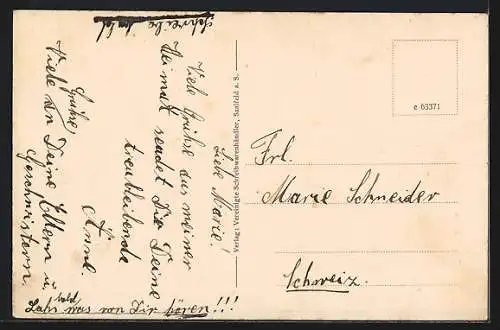 Liebe Marie!
Viele Grüße aus meiner
Heimat sendet Dir Deine
treubleibende
Änne.
Grüße
Viele an Deine Eltern u.
Geschwistern.
Laß bald was von Dir hören!!!
schreibe bald
Verlag: Vereinigte Schreibwarenhändler, Saalfeld a. S.
e 63371
Frl.
Marie Schneider
Schweiz.